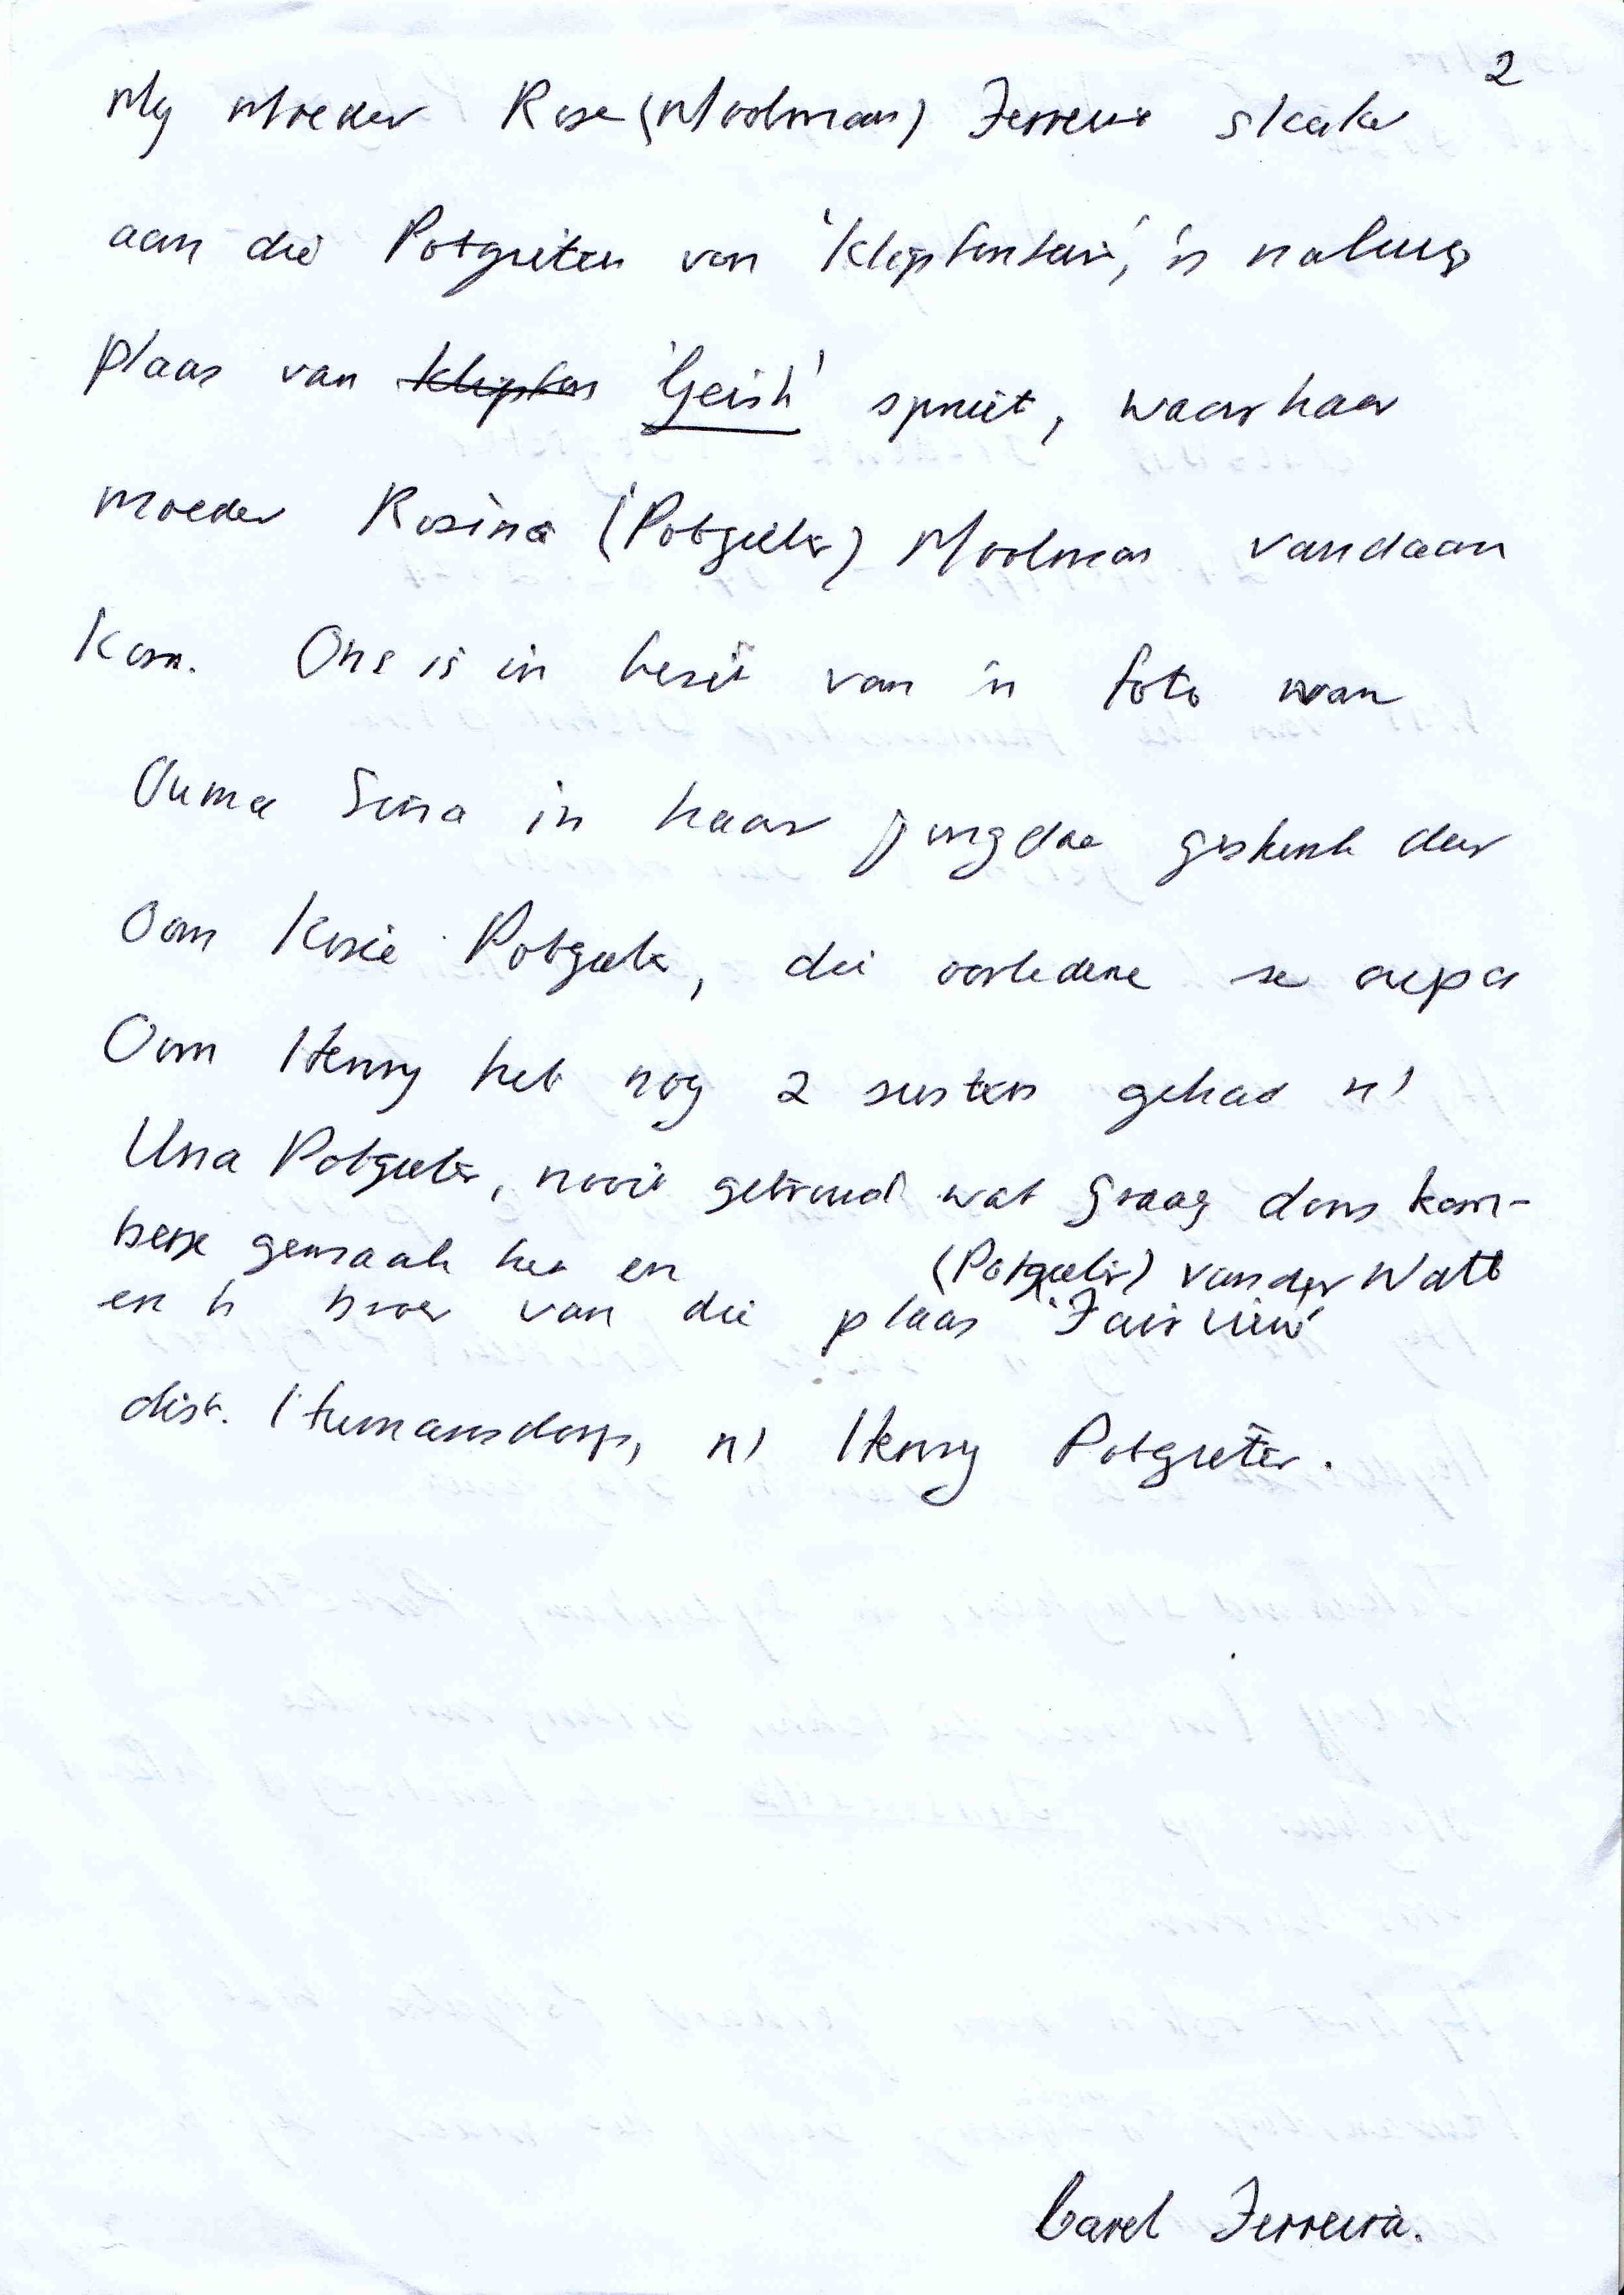 2
My Moeder Rose (Moolman) Ferreira skakel
aan die Potgieters van 'Klipfontein', 'n naburig
plaas van Klipfon 'Geish' spruit, waar haar
moeder Rosina (Potgieter) Moolman vandaan
Kom. Ons is in besit van 'n foto van
Ouma Sina in haar jongdae geskenk deur
Oom Kosie Potgieter, die oorledene se oupa
Oom Henry het nog 2 susters gehad nl
Una Potgieter, nooit getroud wat graag dons kom-
berse gemaak het en (Potgieter) van der Watt
en 'n broer van die plaas 'Fairview'
dist. Humansdorp, nl Henry Potgieter.
Carel Ferreira.